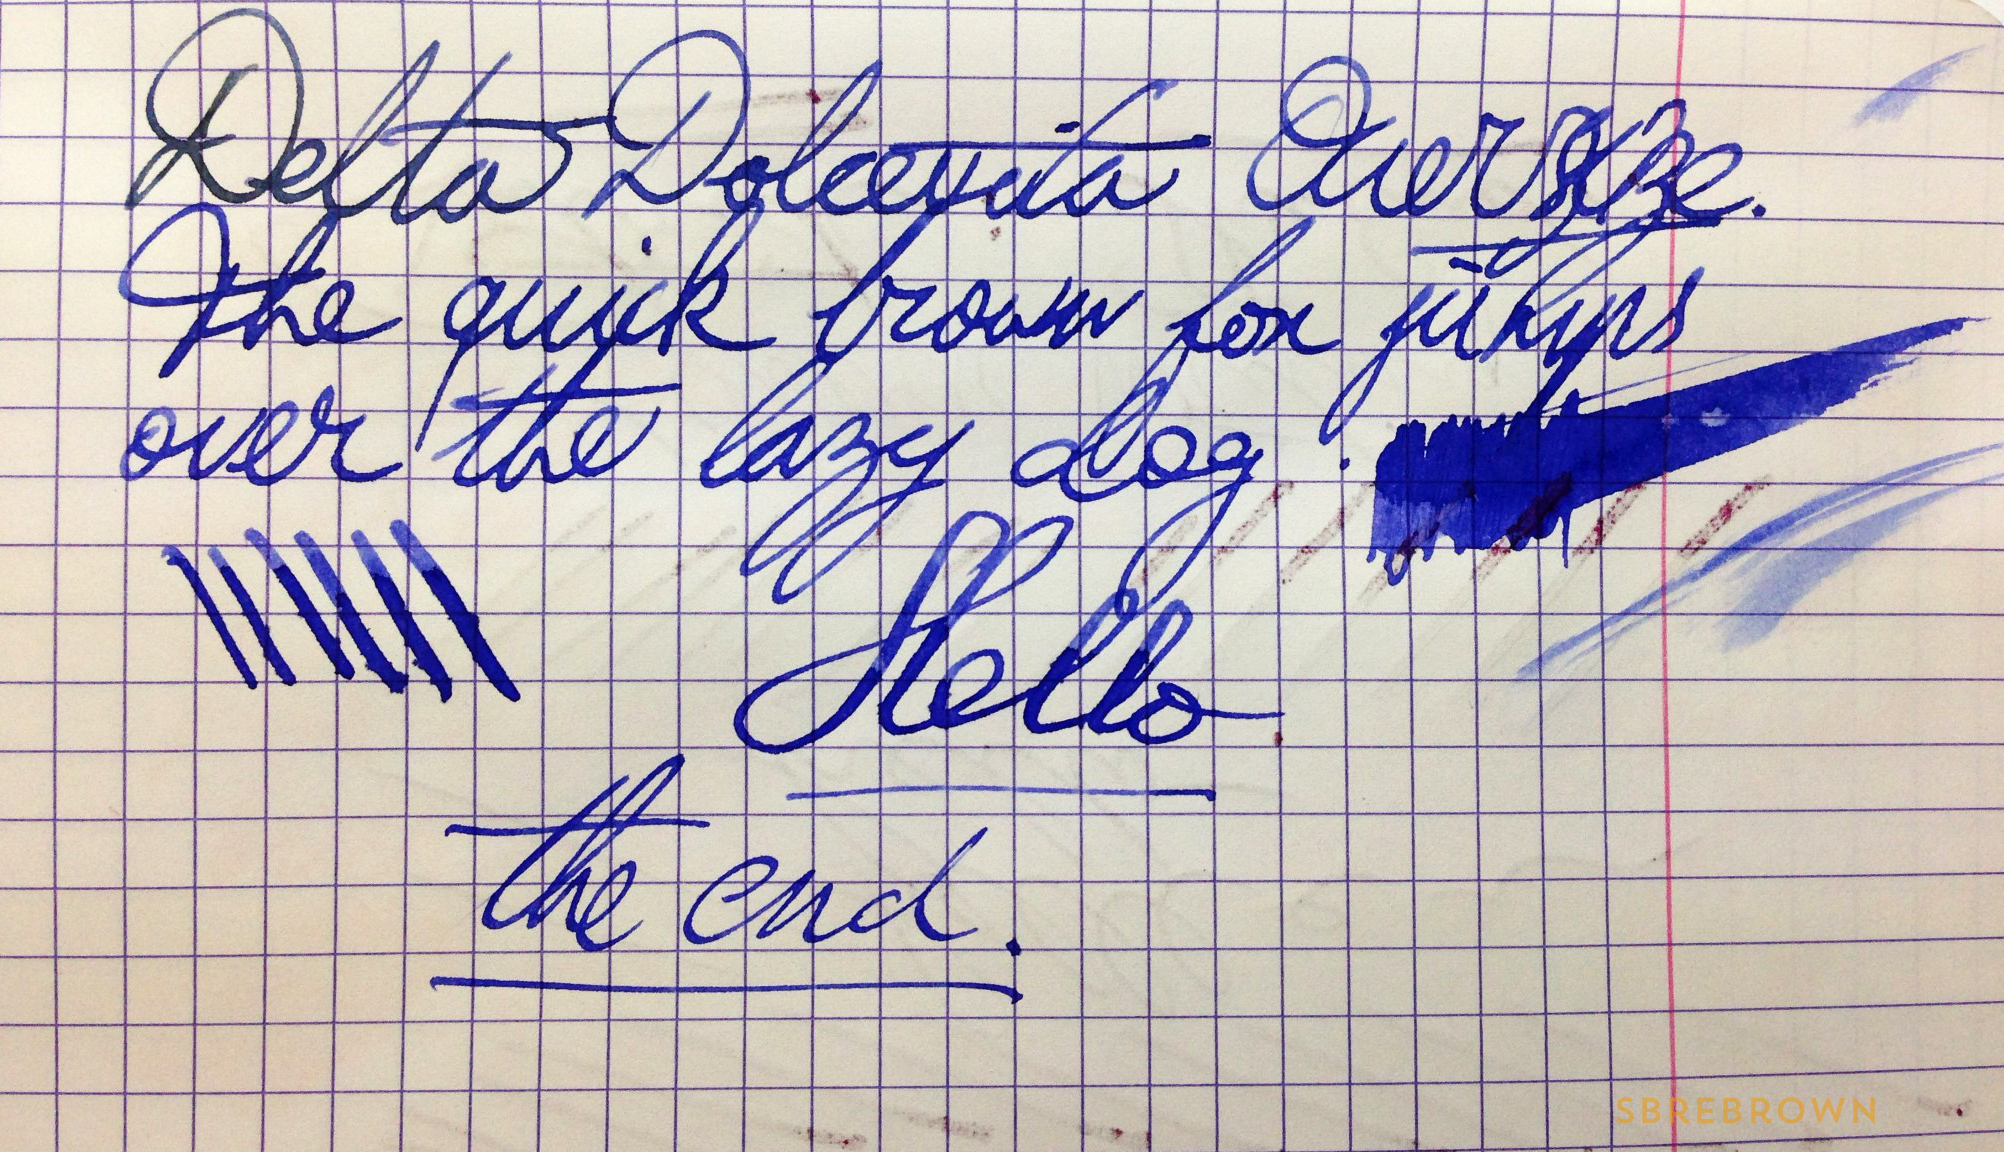 Delta Dolcevita Oversize.
The quick brown fox jumps
over the lazy dog.
Hello
the end.
SBREBROWN